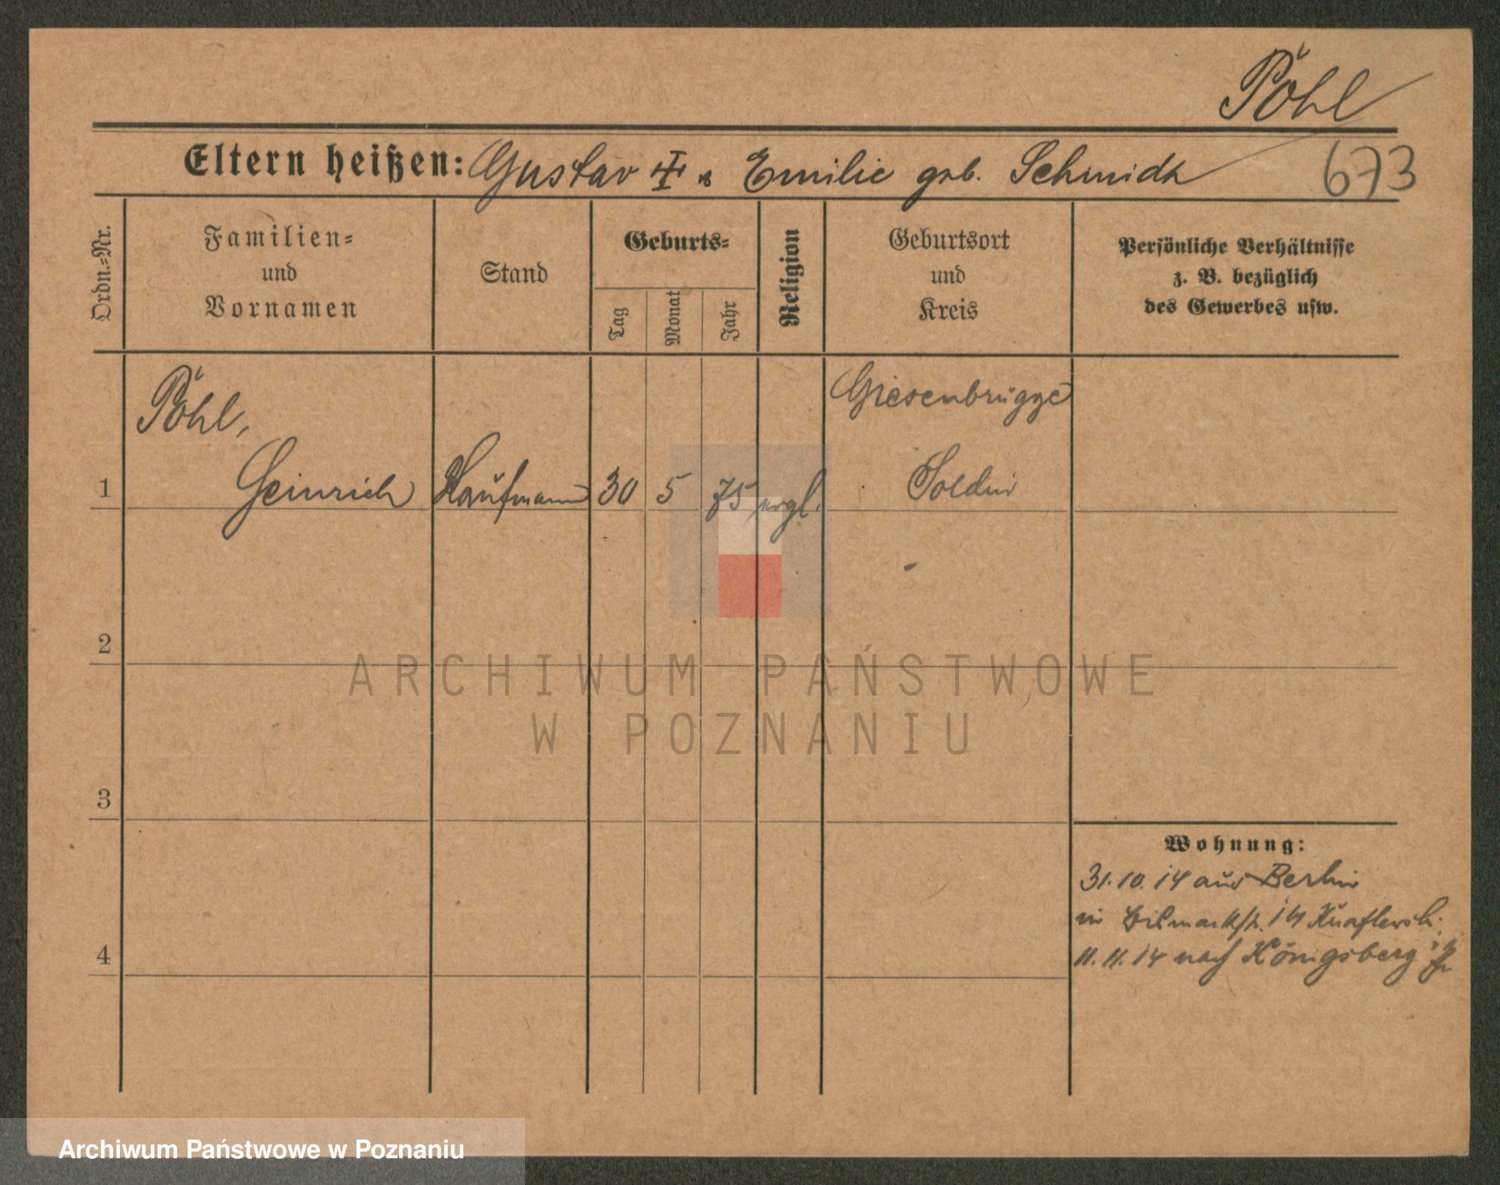 Pöhl
Eltern heißen: Gustav u Emilie geb. Schmidt
673
Ordn.=Nr.
Familien=
und
Vornamen
Stand
Geburts=
Tag
Monat
Jahr
Religion
Geburtsort
und
Kreis
Persönliche Verhältnisse
z. B. bezüglich
des Gewerbes usw.
1
Pöhl,
Heinrich
Kaufmann
30
5
75
evgl.
Giesenbrügge
Soldin
2
3
4
Wohnung:
31.10.14 aus Berlin
in Bismarckstr. 14
11.11.14 nach Königsberg i/Pr
ARCHIWUM PAŃSTWOWE
W POZNANIU
Archiwum Państwowe w Poznaniu